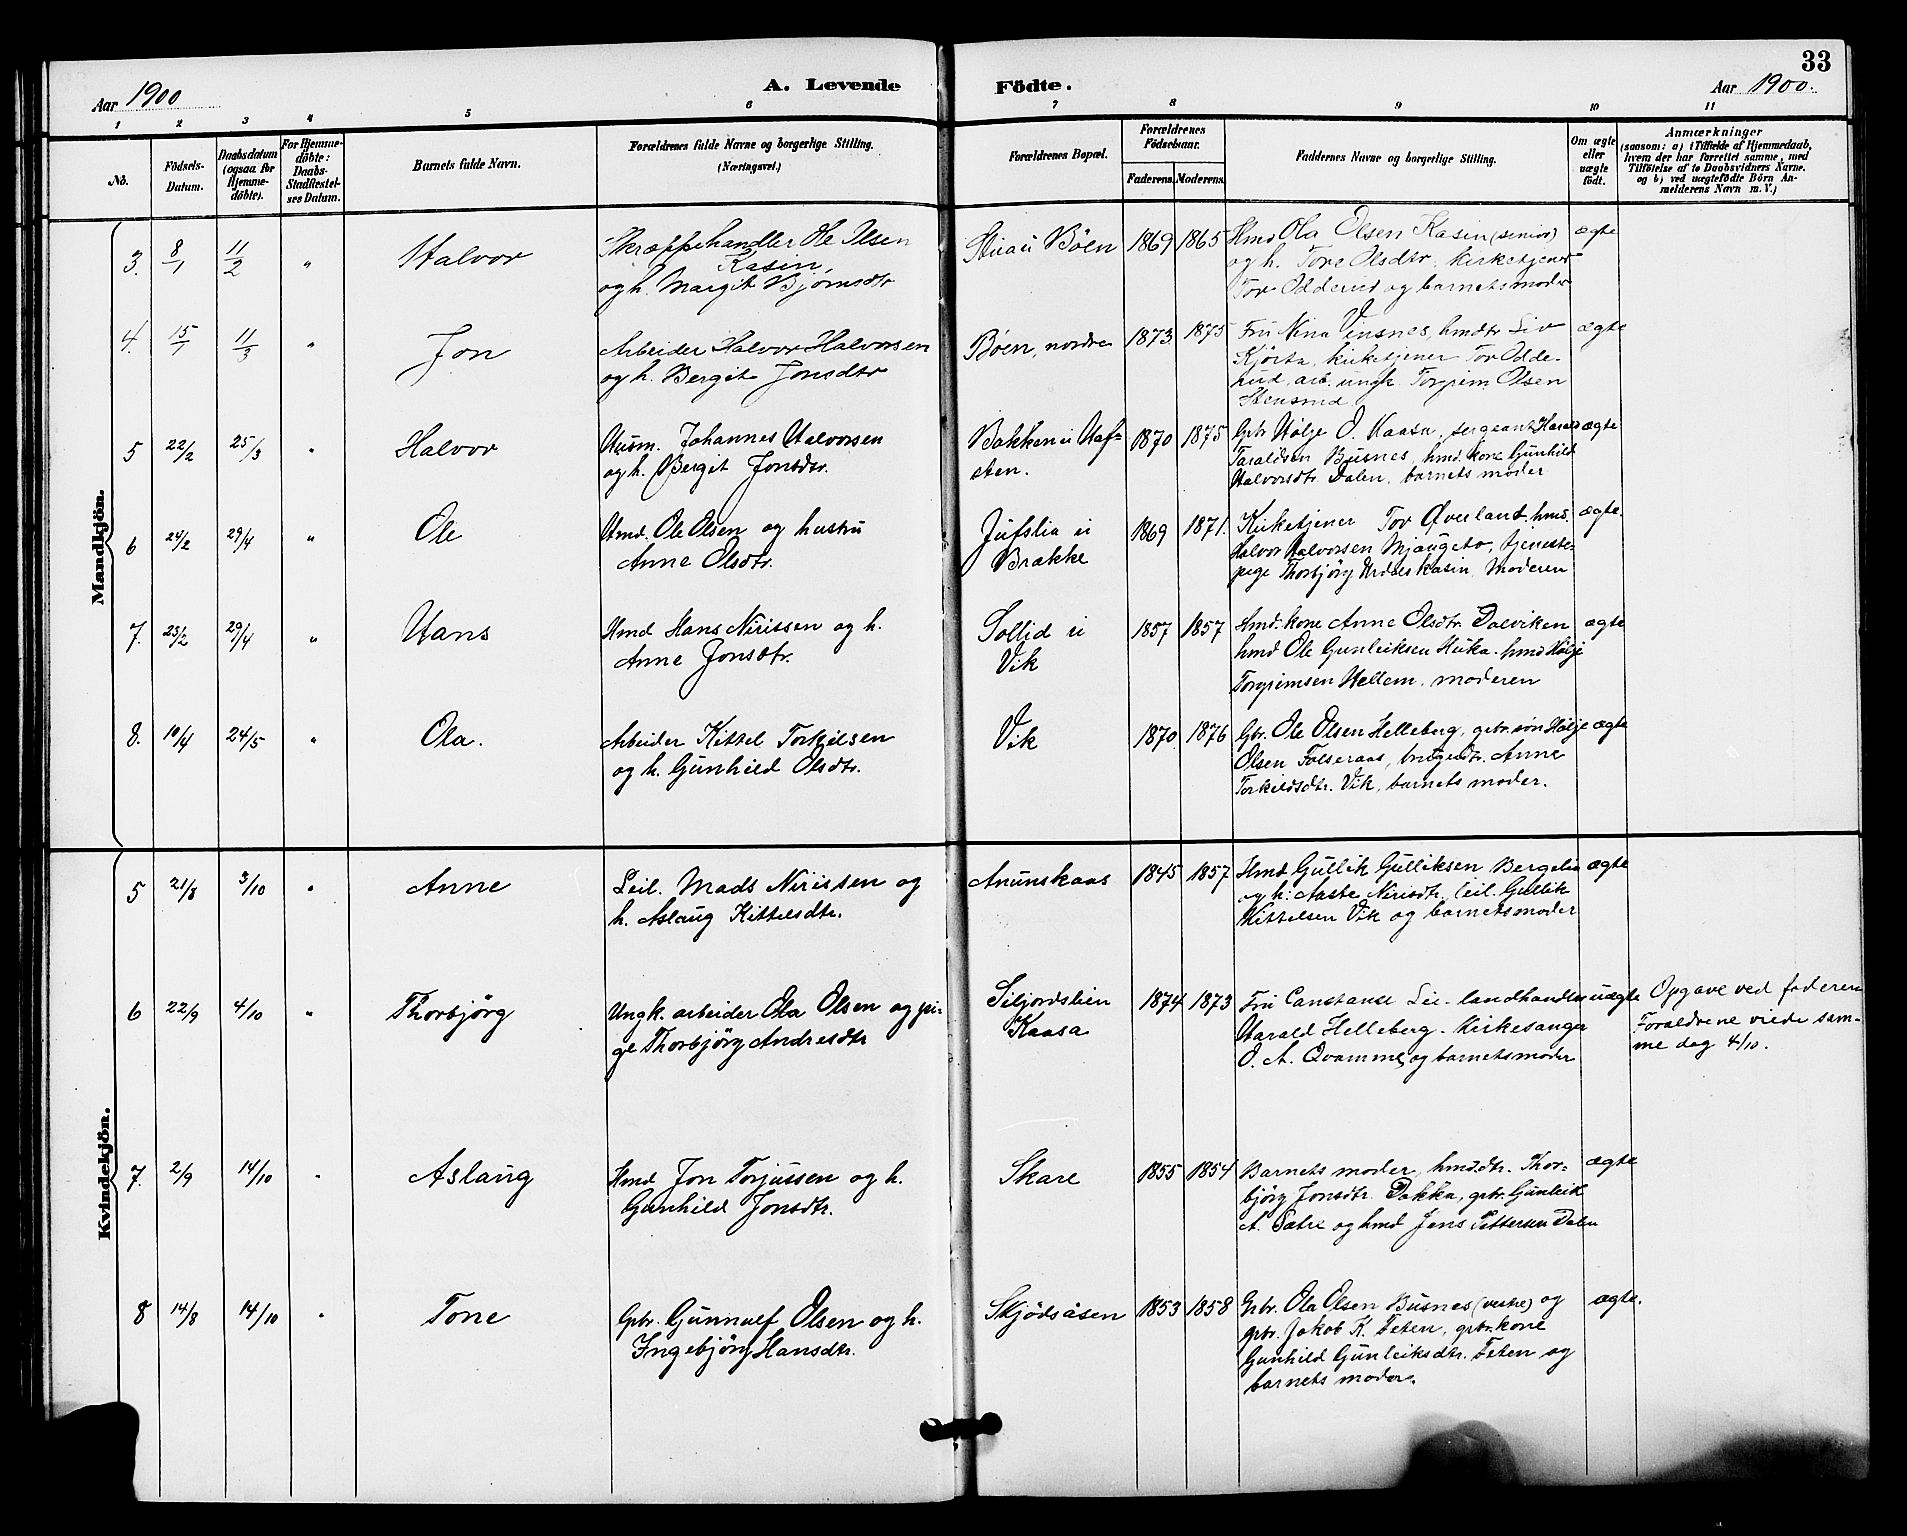 33
Aar 1900
A. Levende
Födte.
Aar 1900.
1 2 3 4 5 6 7 8 9 10 11
No.
Födsels-Datum.
Daabsdatum (ogsaa for Hjemme-döbte).
For Hjemme-döbte: Daabs-Stadfæstel-ses Datum.
Barnets fulde Navn.
Forældrenes fulde Navne og borgerlige Stilling. (Næringsvei.)
Forældrenes Bopæl.
Forældrenes Födselsaar.
Faderens. Moderens.
Faddernes Navne og borgerlige Stilling.
Om ægte eller uægte födt.
Anmærkninger
(saasom: a) i Tilfælde af Hjemmedaab, hvem der har forrettet samme, med Tilföielse af to Daabsvidners Navne, og b) ved uægtefödte Börn An-melderens Navn m. V.)
Mandkjön.
3. 8/1 11/2 " Halvor
Skræppehandler Ole Olsen
Kasin,
og h. Margit Bjørnsdtr
Bøen 1869 1865
Hmd Ola Olsen Kasin (senior)
og h. Tore Olsdtr, kirketjener
Tov Odderud og barnets moder
ægte
4. 15/1 11/3 " Jon
Arbeider Halvor Halvorsen
og h. Bergit Jonsdtr
Bøen, nordre 1873 1875
Fru Nina Vinsnes, hmdtr Liv
Kjørta, kirketjener Tov Odde-
rud, arb. ungk. Torgrim Olsen
ægte
5 22/2 25/3 " Halvor
Husm. Johannes Halvorsen
og h. Bergit Jonsdtr.
Bakken i Haf-
sten. 1870 1875
Gbr Hølje O. Kaasa, sergeant Harald
Taraldsen Busnes, hmd. kone Gunhild
Halvorsdtr Dalen, barnets moder
ægte
6 24/2 29/4 " Ole
Hmd. Ole Olsen og hustru
Anne Olsdtr.
Jufslia i
Brække 1869 1871.
Kirketjener Tov Øverland, hmd.
Halvor Halvorsen Mjaugeto, tjeneste-
pige Thorbjörg Kasin, Moderen
ægte.
7. 23/2 29/4 " Hans
Hmd Hans Nirissen og h.
Anne Jonsdtr.
Sollid i
Vik 1857 1857
Hmd. kone Anne Olsdtr. Dalviken
hmd Ole Gunleiksen Huka. hmd Hølje
Torgrimsen Hellem. moderen
ægte
8. 10/4 24/5 " Ola.
Arbeider Kittel Torkilsen
og h. Gunhild Olsdtr.
Vik 1870 1876
Gbr. Ole Olsen Helleberg, gbr. søn Hølje
Olsen Folseraas, Anne
Torkildsdtr. Vik, barnets moder.
ægte
Kvindekjön.
5 21/8 3/10 " Anne
Leil. Mads Nirissen og
h. Aslaug Kittelsdtr.
Anunskaas 1845 1857
Hmd Gullik Gulliksen Bergelia
og h. Aaste Nirisdtr, leil. Gullik
Kittelsen Vik og barnets moder
ægte
6 22/9 4/10 " Thorbjörg
Ungk. arbeider Ola Olsen og pi-
ge Thorbjörg Andresdtr
Kaasa 1874 1873
Fru Constanse Lie. landhandler
Harald Helleberg. Kirkesanger
O. A. Qvamme, og barnets moder
uægte
Opgave ved faderen
Forældrene viede sam-
me dag 4/10.
7. 2/9 14/10 " Aslaug
Hmd Jon Torjussen og h.
Gunhild Jonsdtr.
Skare 1855 1854
Barnets moder, hmd.dtr. Thor-
björg Jonsdtr. Dokka, gbr. Gunleik
A. Sætre og hmd Jens Pettersen Dalen
ægte
8 14/8 14/10 " Tone
Gbr. Gunnulf Olsen og h.
Ingebjörg Hansdtr.
Skjödsåsen 1853 1858
Gbr. Ola Olsen Busnes (vestre) og
gbr. Jakob K. Teten, gbr. kone
Gunhild Gunleiksdtr. Teten og
barnets moder.
ægte.